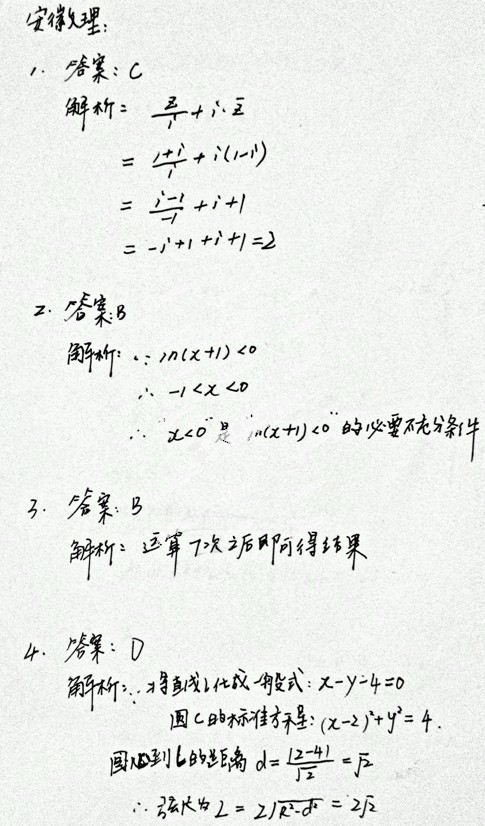 安徽文理:
1. 答案: C
解析= z/i + i·z̄
= (1+i)/i + i(1-i)
= (i-1)/-1 + i+1
= -i+1+i+1=2
2. 答案:B
解析: ∵ ln(x+1)<0
∴ -1<x<0
∴ "x<0"是"ln(x+1)<0"的必要不充分条件
3. 答案: B
解析: 运算7次之后即可得结果
4. 答案: D
解析: ∵将直线l化成一般式: x-y-4=0
圆C的标准方程: (x-2)²+y²=4.
圆心到l的距离 d=|2-4|/√2=√2
∴弦长为L=2√(R²-d²)=2√2